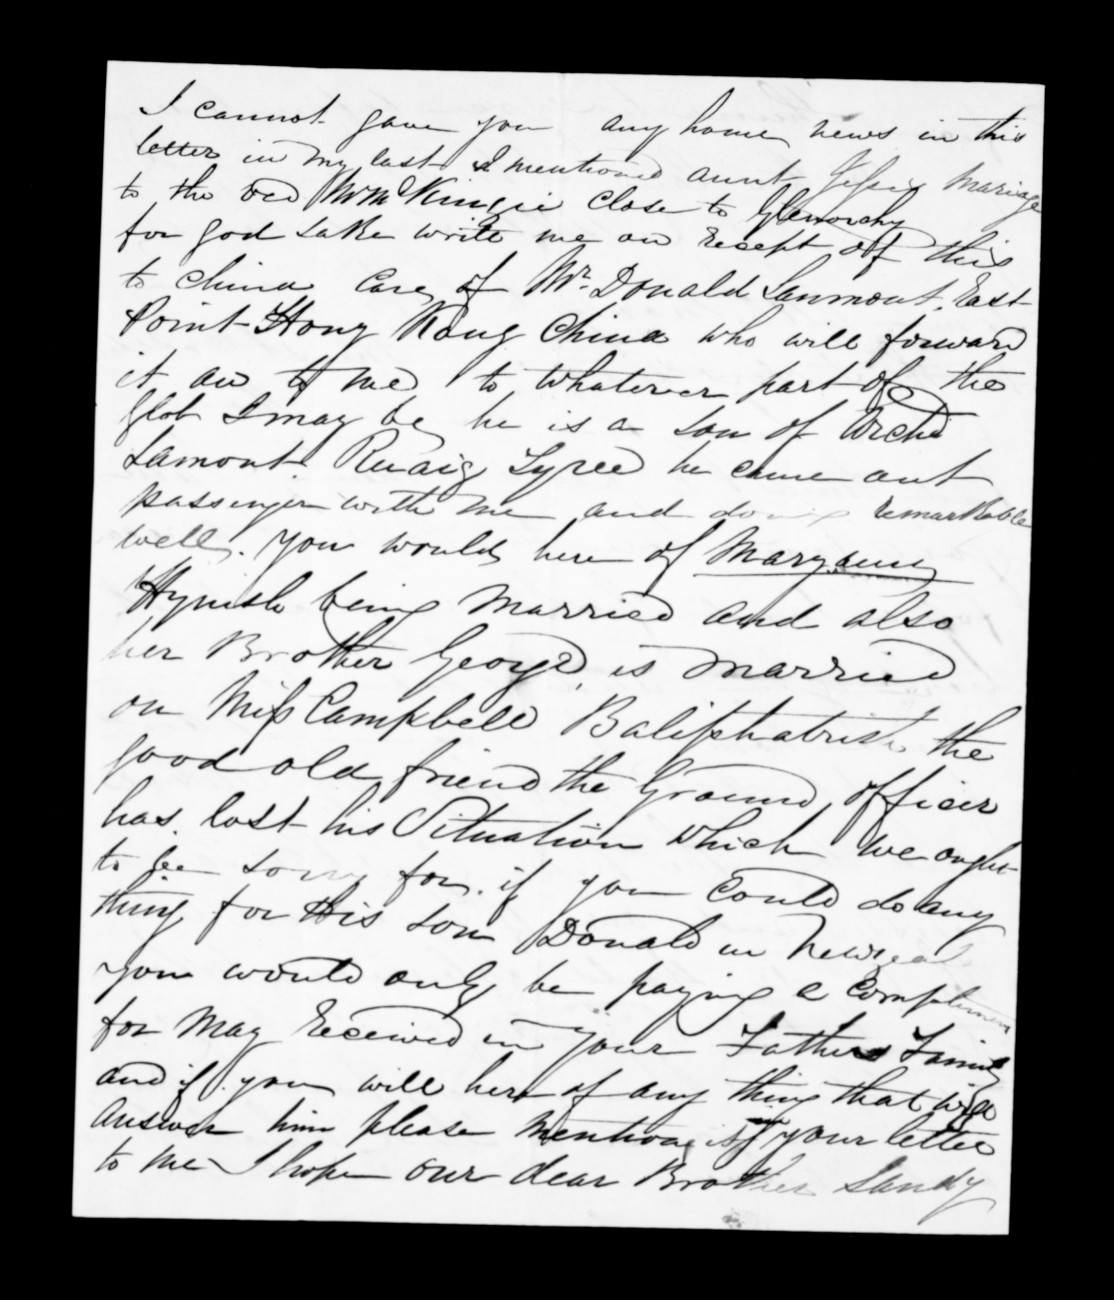 I cannot gave you any home news in this
letter in my last I mentioned aunt Jessie Mariage
to the Rvd McKingie Close to Glenorchy
for god sake write me on Recept off this
to china Care of Mr. Donald Lanmont, East
Point Hong Kong China who will forward
it an to me to whatever part of the
glob I may be he is a son of Archd
Lamont Ruaig Tyree he came out
passenger with me and doing remarkable
well. you would here of Maryann
Hynish being Married and also
her Brother George is married
on Miss Campbell Baliphatrish the
good old friend the Ground officer
has lost his Situation which we ought
to be sorry for. if you could do any
thing for His son Donald in Newzeal
you would only be paying a Complimen
for May Received in your Fathers Family
and if you will here of any thing that will
answer him please mention in your letter
to me I hope our dear Brother Sandy